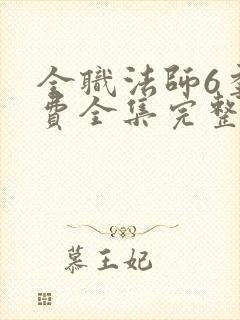 全職法師6
費全集完整
慕王妃